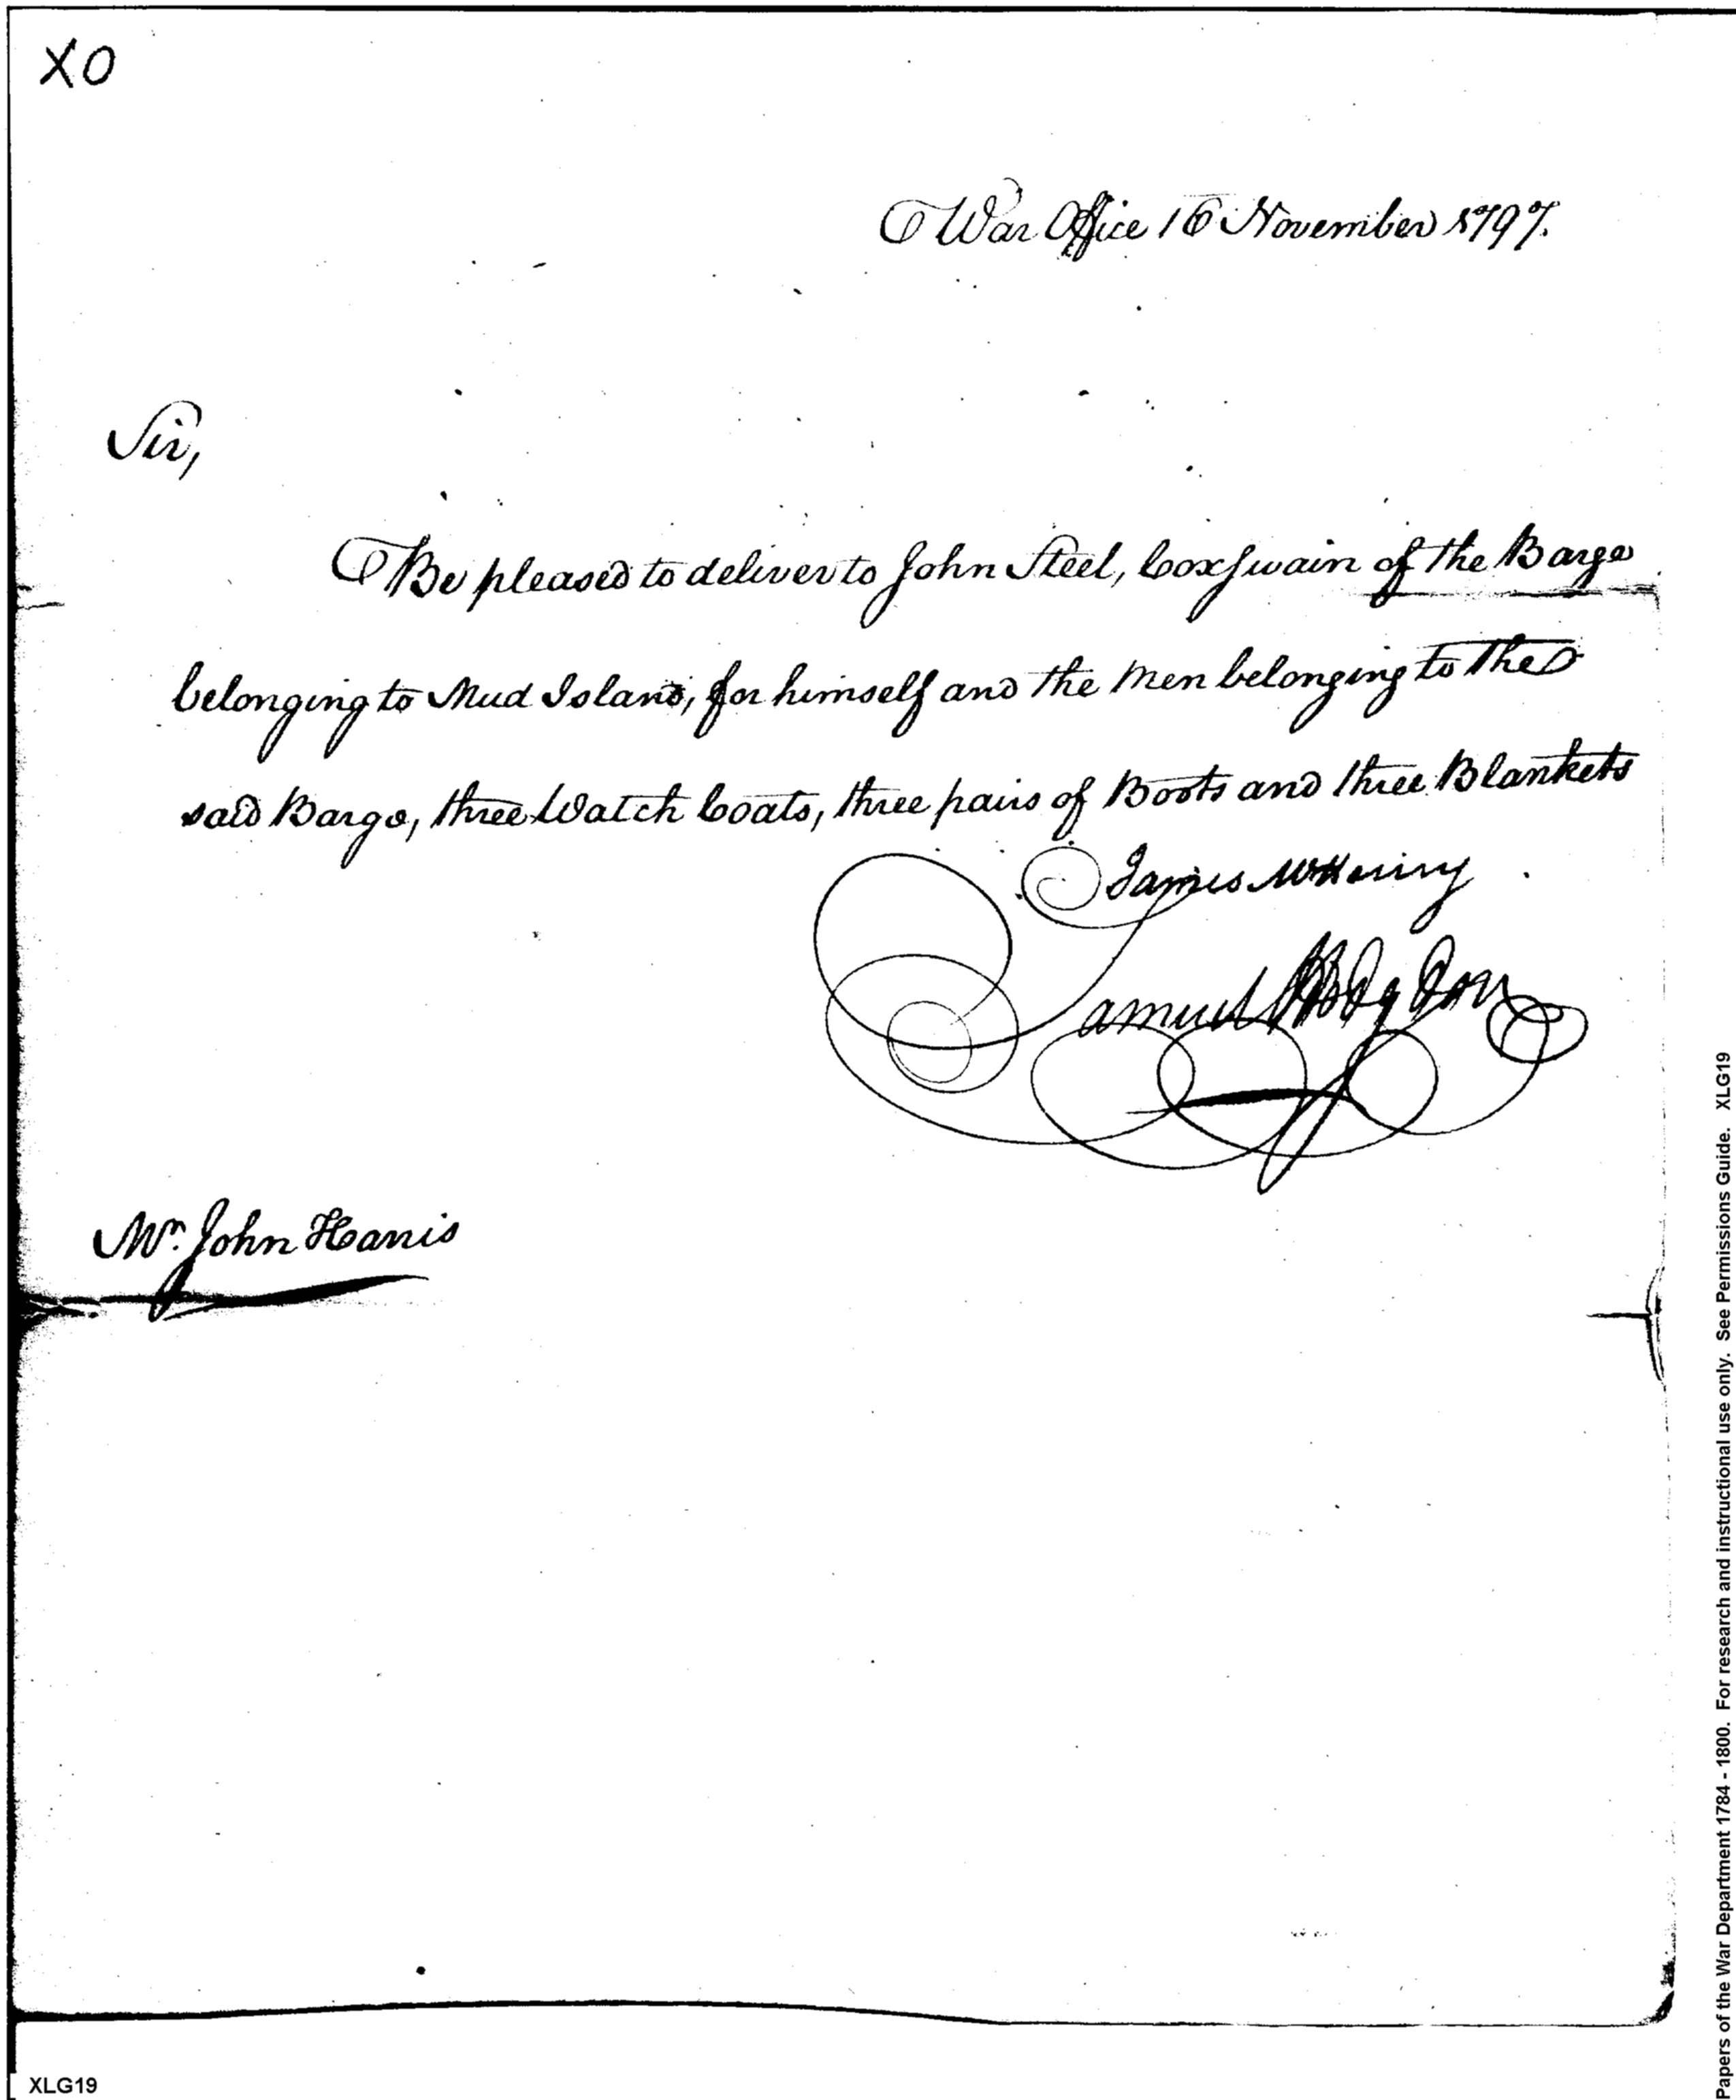 XO
War Office 16 November 1797.
Sir,
Be pleased to deliver to John Steel, Coxswain of the Barge
belonging to Mud Island, for himself and the men belonging to the
said Barge, three Watch Coats, three pairs of Boots and three Blankets
James McHenry
Samuel Hodgdon
Mr. John Harris
XLG19
Papers of the War Department 1784 - 1800. For research and instructional use only. See Permissions Guide. XLG19